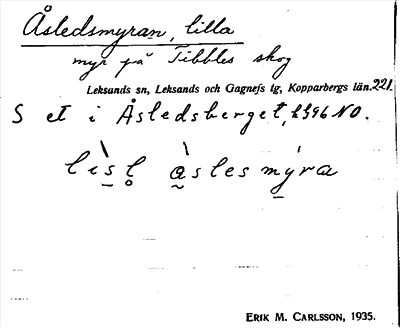 Åsledsmyran, lilla
myr på Tibbles skog
Leksands sn, Leksands och Gagnefs tg, Kopparbergs län. 221.
S et i Åsledsberget, k 396 NO.
lìsl̥ àslesmýra
ERIK M. CARLSSON, 1935.